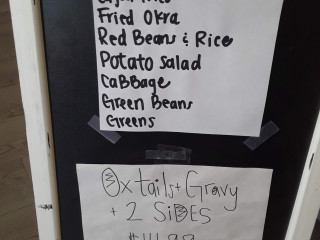 Fried Okra
Red Beans & Rice
Potato Salad
Cabbage
Green Beans
Greens
Oxtails + Gravy
+ 2 SIDES